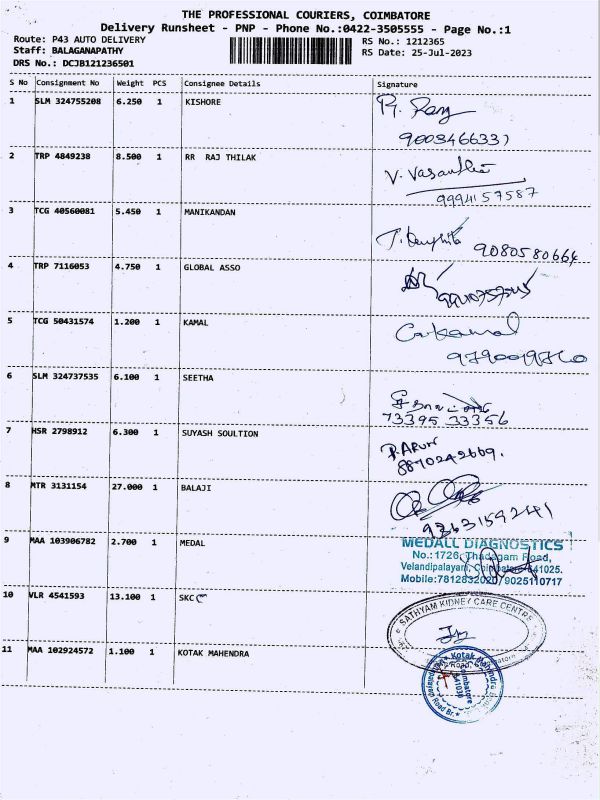 THE PROFESSIONAL COURIERS, COIMBATORE
Delivery Runsheet - PNP - Phone No.:0422-3505555 - Page No.:1
Route: P43 AUTO DELIVERY
RS No.: 1212365
Staff: BALAGANAPATHY
RS Date: 25-Jul-2023
DRS No.: DCJB121236501
S No Consignment No Weight PCS Consignee Details Signature
1 SLM 324755208 6.250 1 KISHORE
9003466337
2 TRP 4849238 8.500 1 RR RAJ THILAK
V. Vasanthi
9994157587
3 TCG 40560081 5.450 1 MANIKANDAN
9080580664
4 TRP 7116053 4.750 1 GLOBAL ASSO
5 TCG 50431574 1.200 1 KAMAL
C. Kamal
9790019760
6 SLM 324737535 6.100 1 SEETHA
73395 33356
7 HSR 2798912 6.300 1 SUYASH SOULTION
P. ARUN
8870242669.
8 MTR 3131154 27.000 1 BALAJI
9363159241
9 MAA 103906782 2.700 1 MEDAL
MEDALL DIAGNOSTICS
No.: 1726, Thadagam Road,
Velandipalayam, Coimbatore-641025.
Mobile:7812832020/9025110717
10 VLR 4541593 13.100 1 SKC
SATHYAM KIDNEY CARE CENTRE
11 MAA 102924572 1.100 1 KOTAK MAHENDRA
Kotak Mahindra Bank
Coimbatore
641038